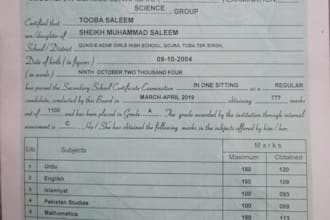 SCIENCE GROUP
Certified that TOOBA SALEEM
son/daughter of SHEIKH MUHAMMAD SALEEM
School / District QUAID-E-AZAM GIRLS HIGH SCHOOL, GOJRA, TOBA TEK SINGH,
Date of birth ( in figures ) 09-10-2004
(in words) NINTH OCTOBER TWO THOUSAND FOUR
has passed the Secondary School Certificate Examination IN ONE SITTING as a REGULAR
candidate, conducted by this Board in MARCH-APRIL 2019 obtaining 777 marks
out of 1100 and has been placed in Grade A The grade awarded by the institution through internal
assessment is C He / She has obtained the following marks in the subjects offered by him / her.
S.No Subjects Marks
Maximum Obtained
1 Urdu 150 120
2 English 150
3 Islamiyat 100
4 Pakistan Studies 100
5 Mathematics 150 113